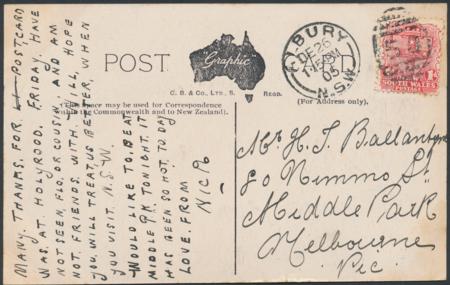 MANY. THANKS. FOR. POSTCARD
WAS. AT. HOLYROOD. FRIDAY. HAVE
NOT SEEN, FLO. OR COUSIN. AND AM
NOT. FRIENDS. WITH. WILL, HOPE
YOU, WILL TREAT, US BETTER, WHEN
YOU VISIT. N.S.W
WOULD LIKE TO. BE AT
MIDDLE PK. TONIGHT. IT
HAS BEEN SO HOT. TO. DAY
LOVE. FROM
POST
Graphic
C. B. & Co., LTD., S. REGD.
(This space may be used for Correspondence
within the Commonwealth and to New Zealand).
(For Address only).
ALBURY
DE 26
05
N.S.W
SOUTH WALES
POSTAGE
Mr H. J. Ballantyne
Nimmo St
Middle Park
Melbourne
Vic